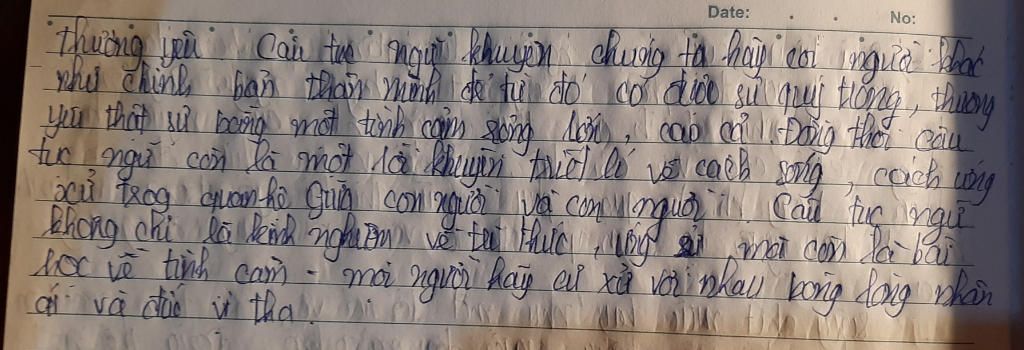 Date: . . No:
thương yêu. Câu tục ngữ khuyên chúng ta hãy coi người khác
như chính bản thân mình để từ đó có được sự quý trọng, thương
yêu thật sự bằng một tình cảm rộng lớn, cao cả. Đồng thời câu
tục ngữ còn là một lời khuyên triết lí về cách sống, cách ứng
xử trog quan hệ giữa con người và con người. Câu tục ngữ
không chỉ là kinh nghiệm về tri thức, ứng xử mà còn là bài
học về tình cảm - mọi người hãy cư xử với nhau bằng lòng nhân
ái và đức vị tha.